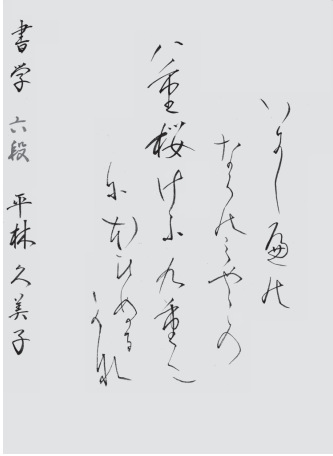 いにしへの
ならのみやこの
八重桜けふ九重に
にほひぬる
かな
書学 六段 平林久美子